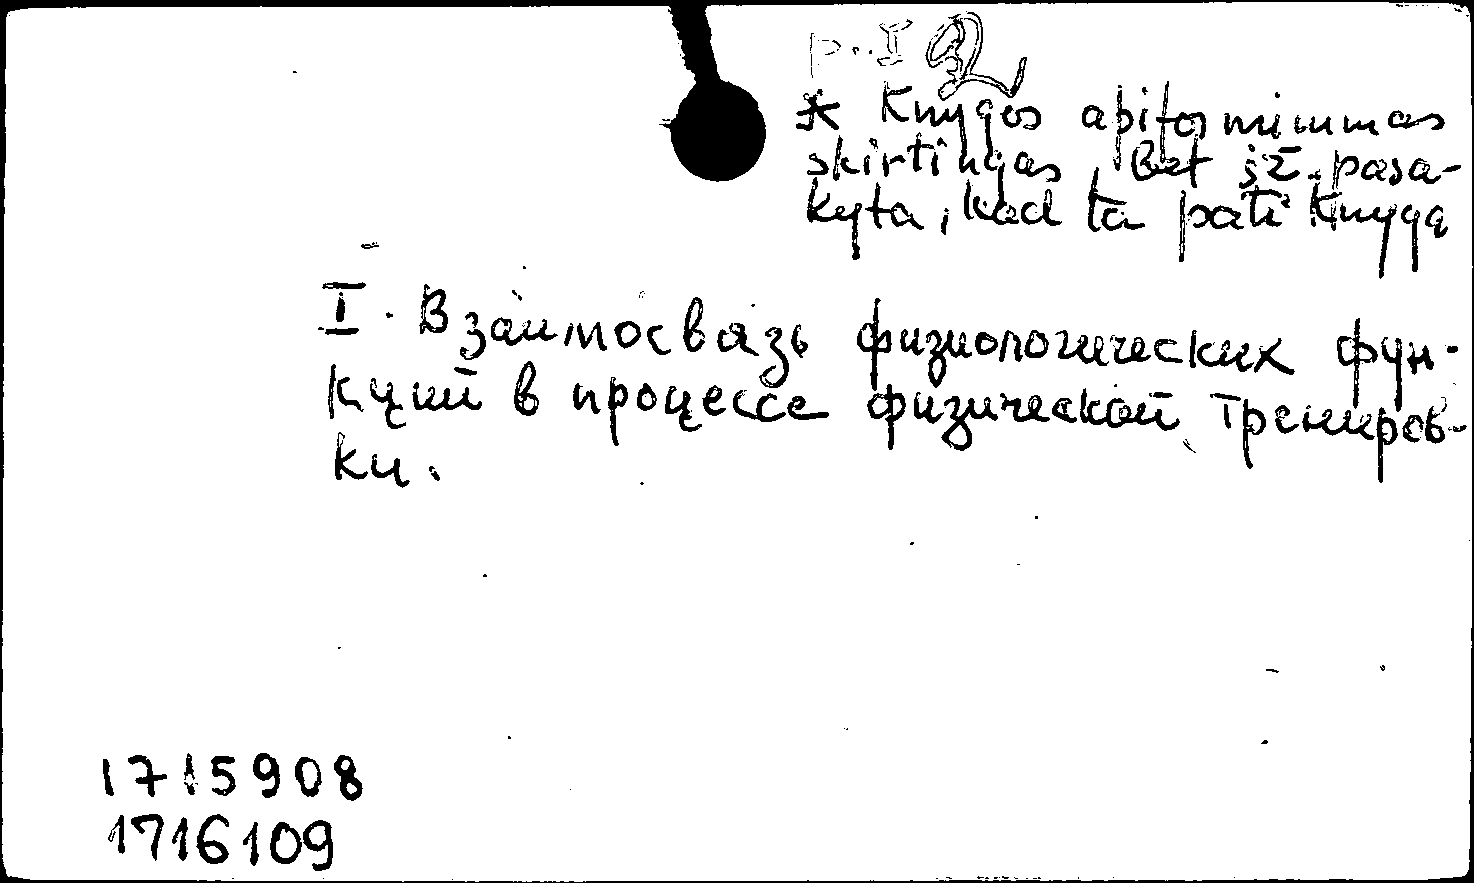 p. I
* Knygos apiforminimas
skirtingas bet iš pasa-
kyta, kad ta pati knyga
I. Взаимосвязь физиологических фун-
кций в процессе физической трениров-
ки.
1715908
1716109